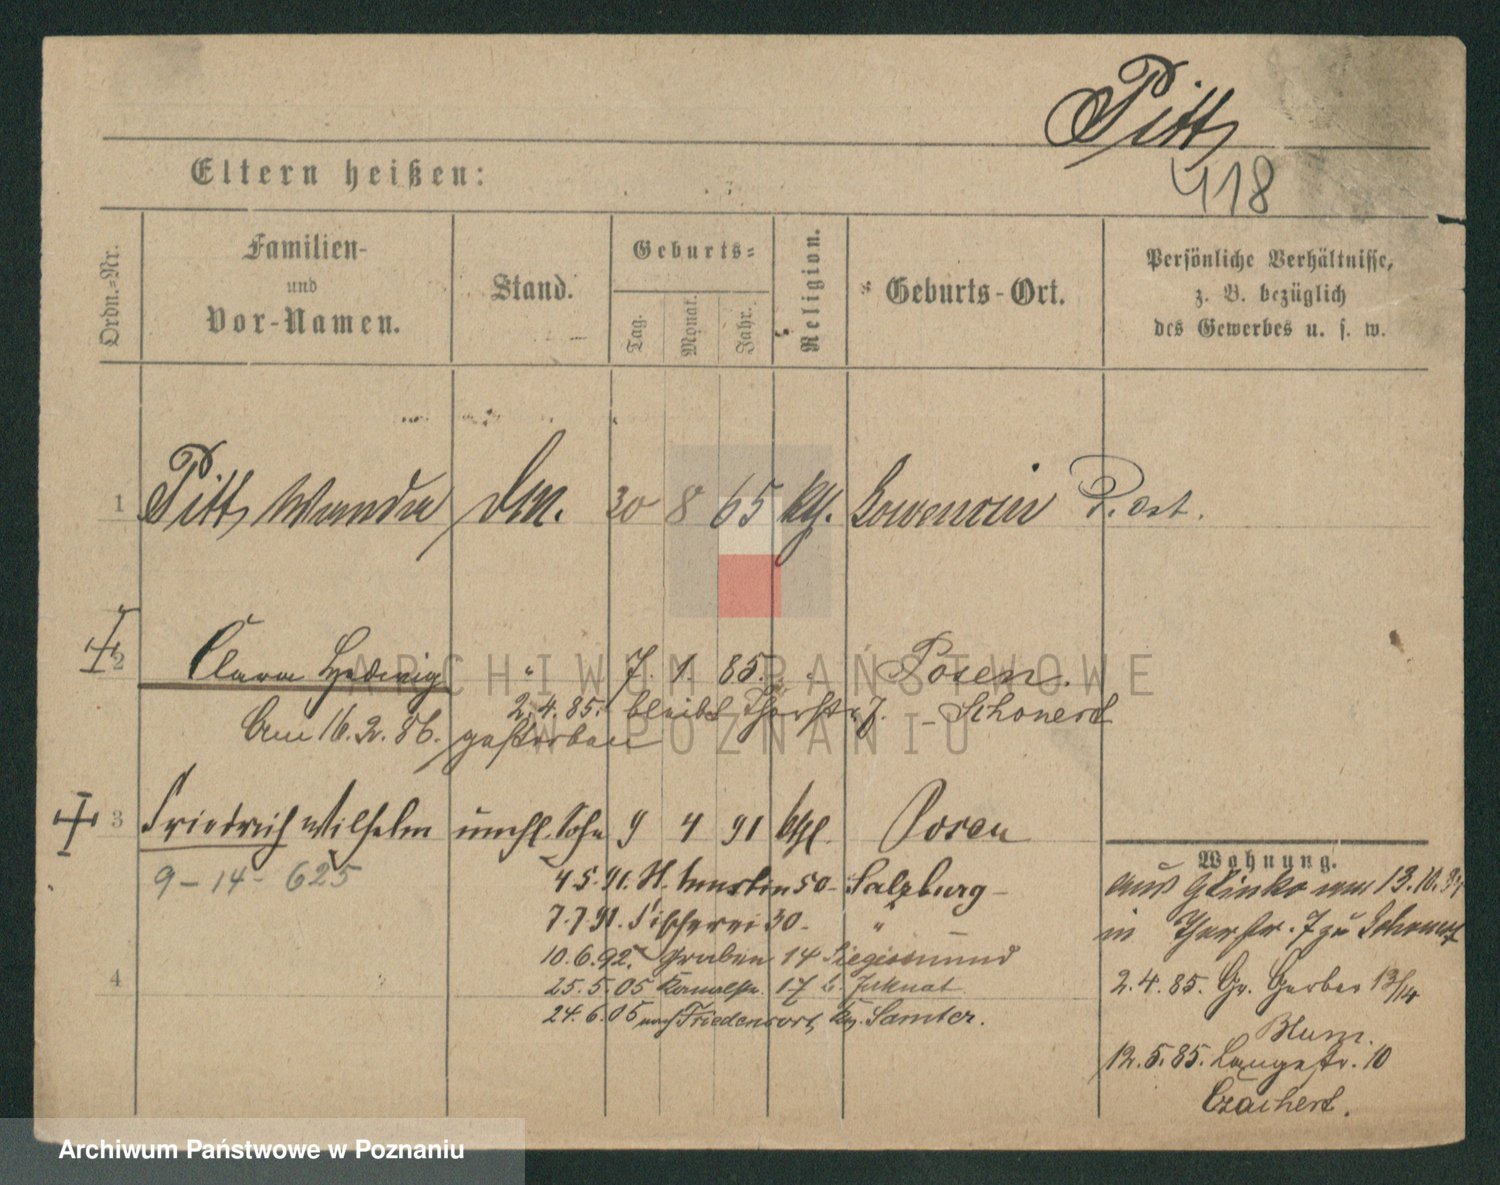 Pitt
418
Eltern heißen:
Ordn.=Nr.
Familien-
und
Vor-Namen.
Stand.
Geburts=
Tag.
Monat.
Jahr.
Religion.
Geburts-Ort.
Persönliche Verhältnisse,
z. B. bezüglich
des Gewerbes u. s. w.
1 Pitt, Wanda 30 8 65 ktl. P. Ost.
2 Clara Hedwig " 7. 1. 85. Posen.
2.4.85. bleibt Thorstr. 7. - Schonert
Am 16.2.86. gestorben
3 Friedrich Wilhelm unehl. Sohn 9 4 91 ktl. Posen
9-14- 625
4.5.91. St. Martin 50- Salzburg-
7.7.91. Fischerei 30- "
10.6.92. Graben 14 Siegismund
4
25.5.05 Kanalstr. 17 b. Juknat
24.6.05 nach Friedensort, Kr. Samter.
Wohnung.
aus Glinko 13.10.
in Thorstr. 7 zu Schonert
2.4.85. Gr. Gerber 13/14
Blum.
12.5.85. Langestr. 10
Czachert.
ARCHIWUM PAŃSTWOWE
W POZNANIU
Archiwum Państwowe w Poznaniu